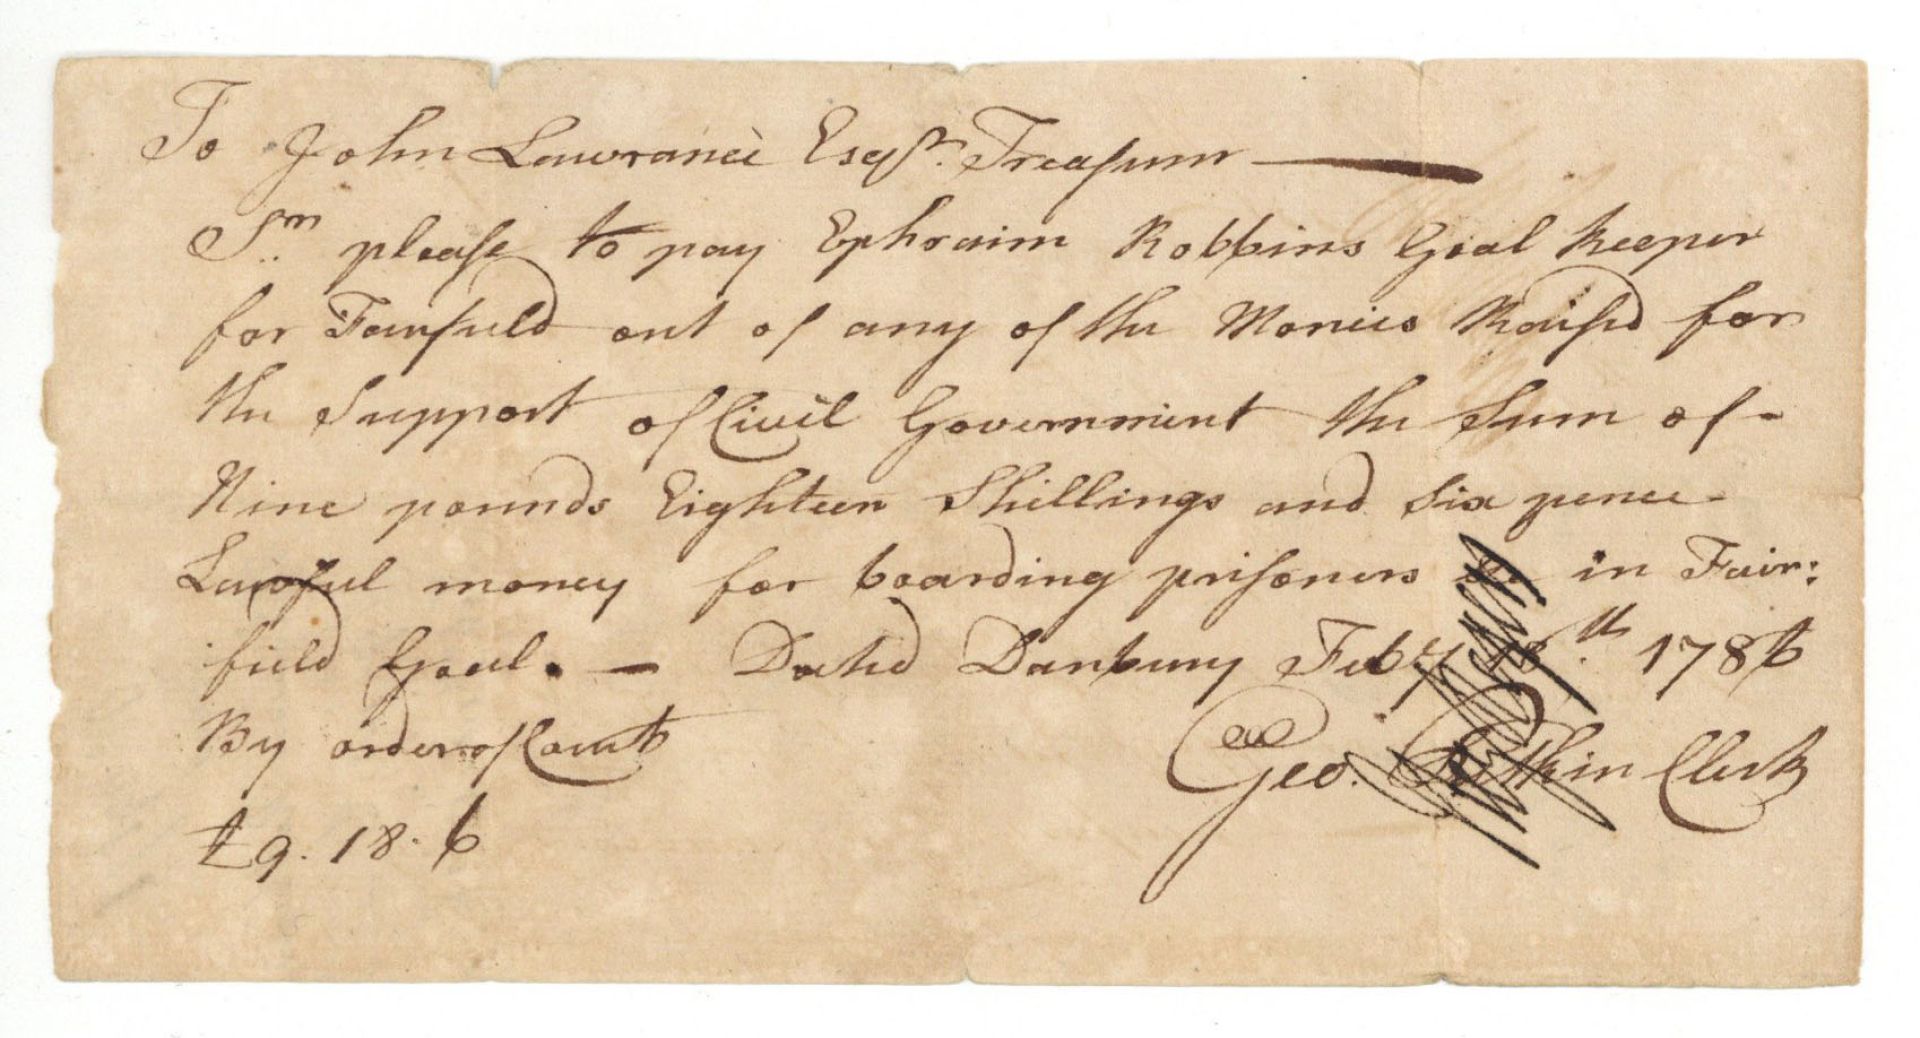 To John Lawrance Esqr. Treasurer
Sr. please to pay Ephraim Robbins Goal Keeper
for Fairfield out of any of the Monies Raised for
the Support of Civil Government the Sum of-
Nine pounds Eighteen Shillings and Six pence-
Lawful money for boarding prisoners in Fair:
field Goal. — Dated Danbury Feby 18th 1786
By order of Court
£9. 18. 6
Geo. Pitkin Clerk